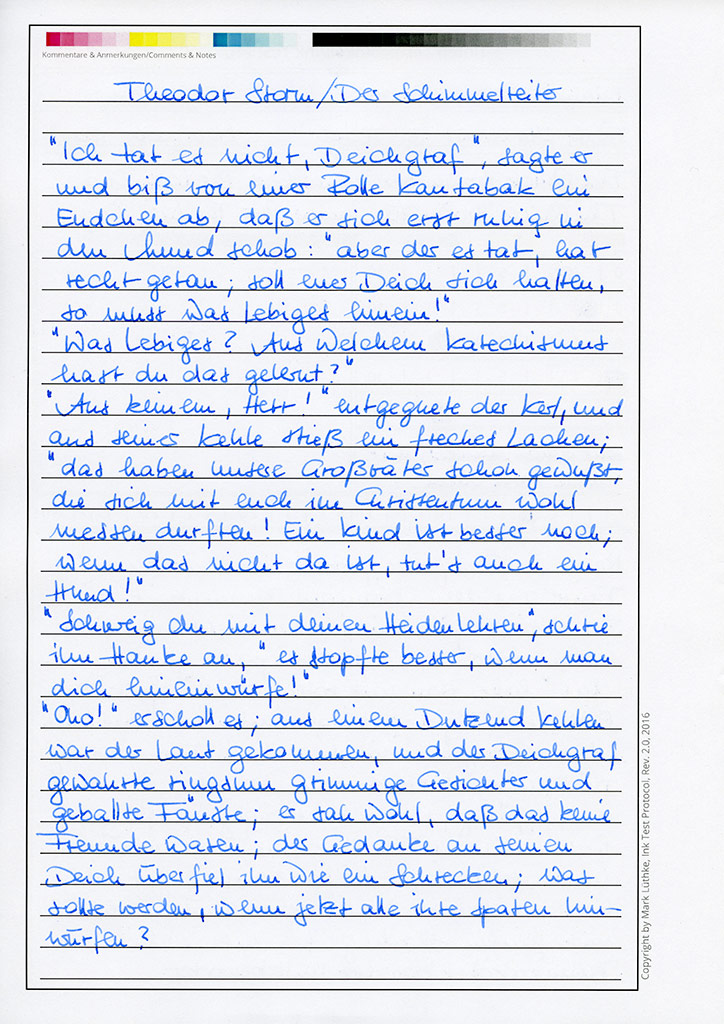 Kommentare & Anmerkungen/Comments & Notes
Theodor Storm/Der Schimmelreiter
"Ich tat es nicht, Deichgraf", sagte er
und biß von einer Rolle Kautabak ein
Endchen ab, daß er sich erst ruhig in
den Mund schob: "aber der es tat, hat
recht getan; soll euer Deich sich halten,
so muss was Lebiges hinein!"
"Was Lebiges? Aus welchem Katechismus
hast du das gelernt?"
"Aus keinem, Herr!" entgegnete der Kerl, und
aus seiner Kehle stieß ein freches Lachen;
"das haben unsere Großväter schon gewußt,
die sich mit euch im Christentum wohl
messen durften! Ein Kind ist besser noch;
wenn das nicht da ist, tut's auch ein
Hund!"
"Schweig du mit deinen Heidenlehren", schrie
ihn Hauke an, "es stopfte besser, wenn man
dich hineinwürfe!"
"Oho!" erscholl es; aus einem Dutzend Kehlen
war der Laut gekommen, und der Deichgraf
gewahrte ringsum grimmige Gesichter und
geballte Fäuste; er sah wohl, daß das keine
Freunde waren; der Gedanke an seinen
Deich überfiel ihn wie ein Schrecken; was
sollte werden, wenn jetzt alle ihre Spaten hin-
würfen?
Copyright by Mark Luthke, Ink Test Protocol, Rev. 2.0, 2016